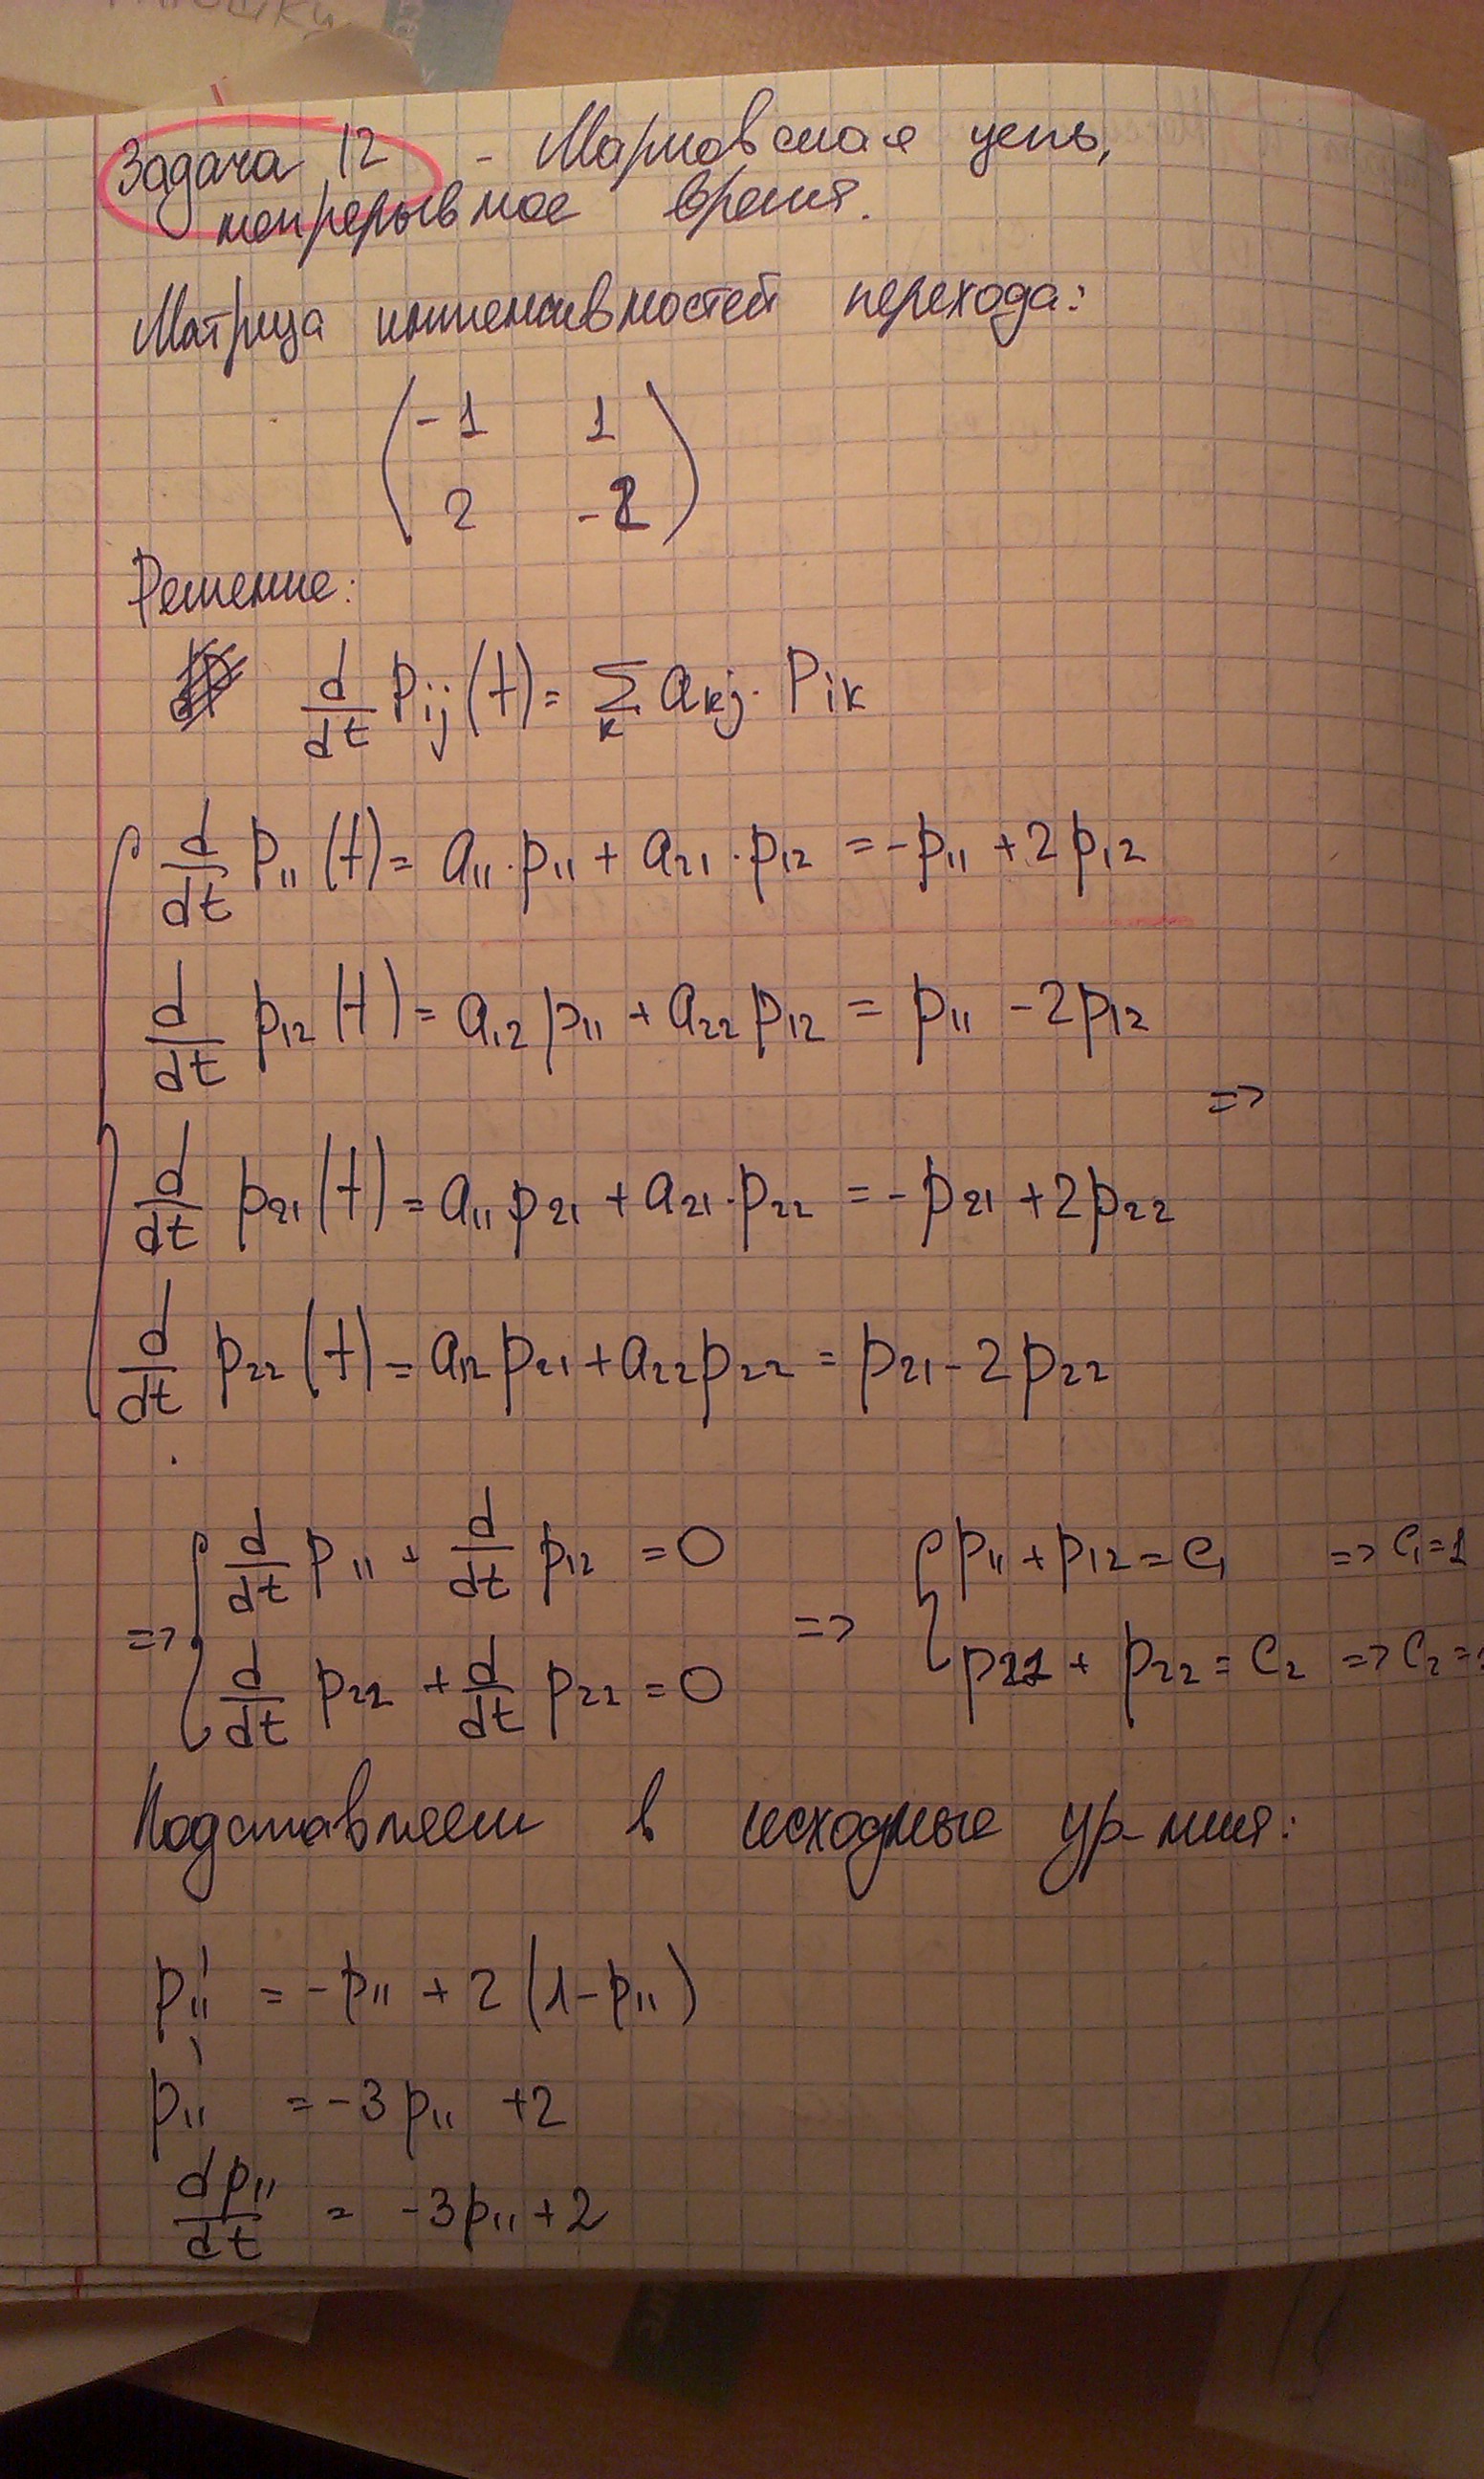 Задача 12 - Марковская цепь,
непрерывное время.
Матрица интенсивностей перехода:
( -1 1
2 -2 )
Решение:
d/dt Pij(t) = Σk akj · Pik
d/dt p11(t) = a11·p11 + a21·p12 = -p11 + 2p12
d/dt p12(t) = a12 p11 + a22 p12 = p11 - 2p12
=>
d/dt p21(t) = a11 p21 + a21·p22 = -p21 + 2p22
d/dt p22(t) = a12 p21 + a22 p22 = p21 - 2p22
d/dt p11 + d/dt p12 = 0 p11 + p12 = c1 => c1 = 1
=> =>
d/dt p21 + d/dt p22 = 0 p21 + p22 = c2 => c2 =
Подставляем в исходные ур-ния:
p11' = -p11 + 2(1-p11)
p11' = -3p11 + 2
dp11/dt = -3p11 + 2